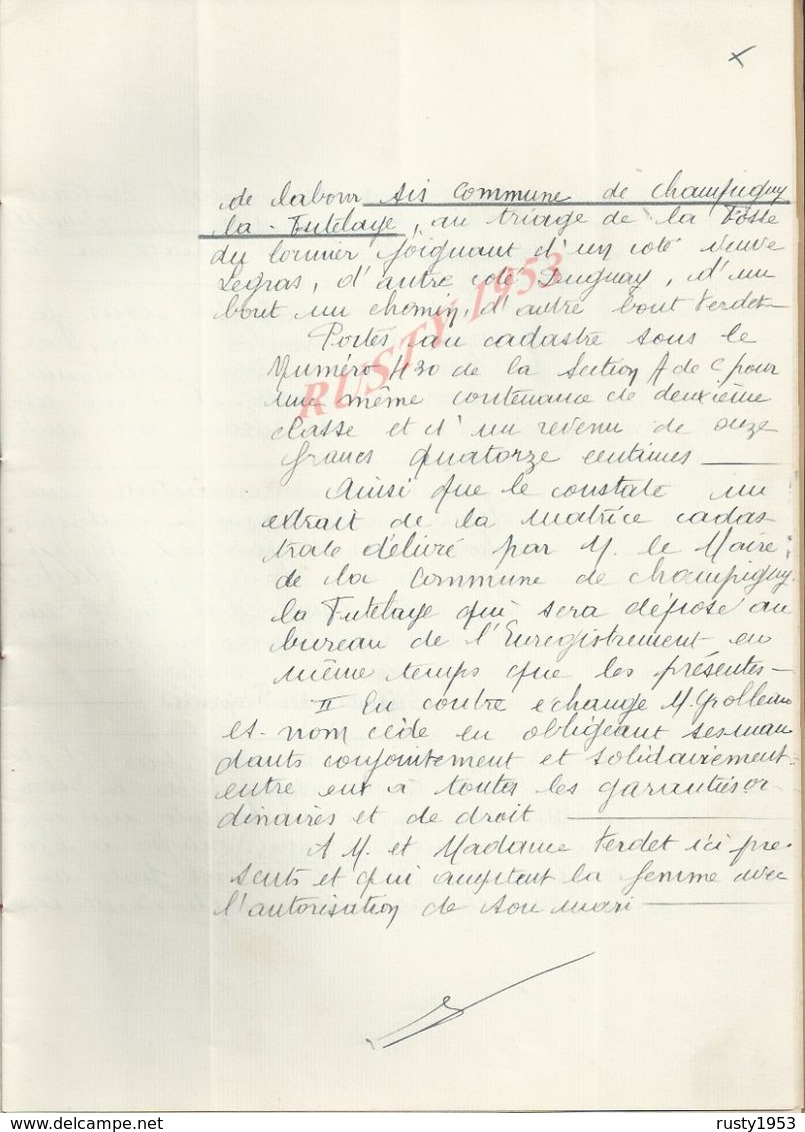 x
de labour sis commune de Champigny
la-Futelaye, au triage de la Fosse
du lormier joignant d'un coté veuve
Legras, d'autre coté Duguay, d'un
bout un chemin, d'autre bout Verdet
Portés au cadastre sous le
Numéro 430 de la Section A de C pour
une même contenance de deuxième
classe et d'un revenu de onze
francs quatorze centimes
Ainsi que le constate un
extrait de la matrice cadas-
trale délivré par M. le Maire
de la commune de Champigny
la Futelaye qui sera déposé au
bureau de l'Enregistrement en
même temps que les présentes
II En contre echange M. Grolleau
es-nom cède en obligeant ses man
dants conjointement et solidairement
entre eux à toutes les garanties or
dinaires et de droit
A M. et Madame Verdet ici pré-
sents et qui acceptent la femme avec
l'autorisation de son mari
RUSTY 1953
delcampe.net
rusty1953